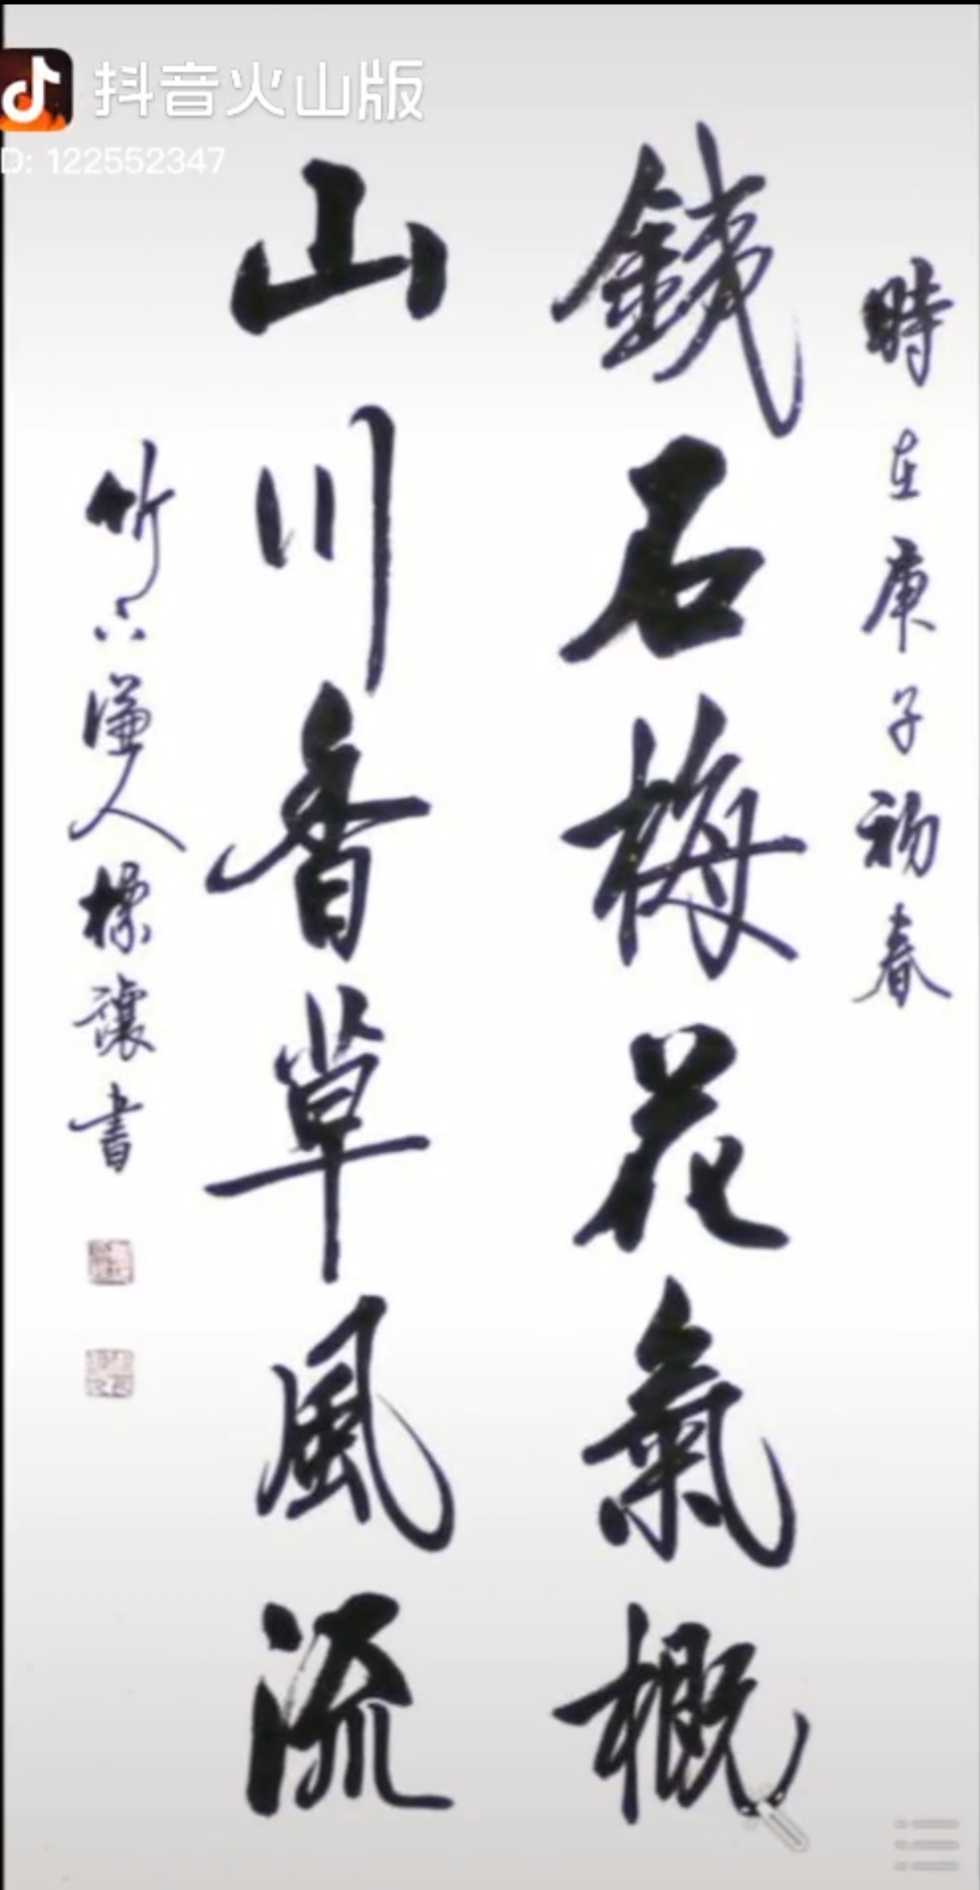 抖音火山版
ID: 122552347
時在庚子初春
鐵石梅花氣概
山川香草風流
竹下謙人樣讓書